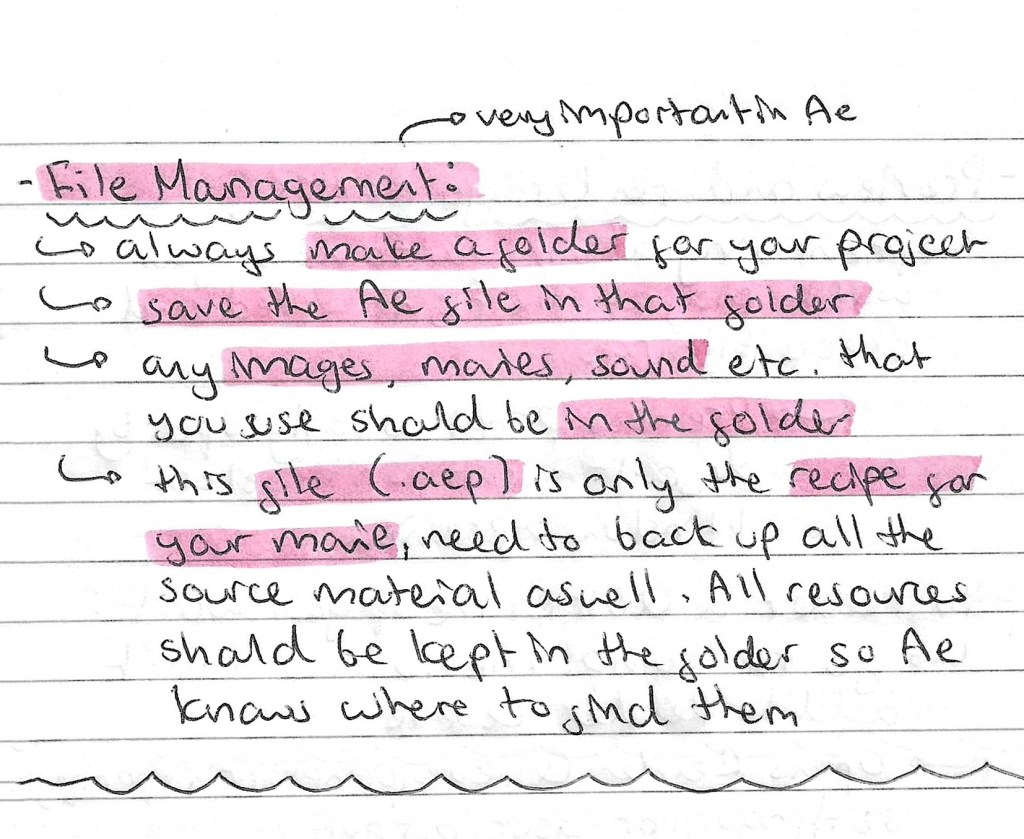 very important in Ae
- File Management:
always make a folder for your project
save the Ae file in that folder
any images, movies, sound etc. that
you use should be in the folder
this file (.aep) is only the recipe for
your movie, need to back up all the
source material aswell. All resources
should be kept in the folder so Ae
knows where to find them